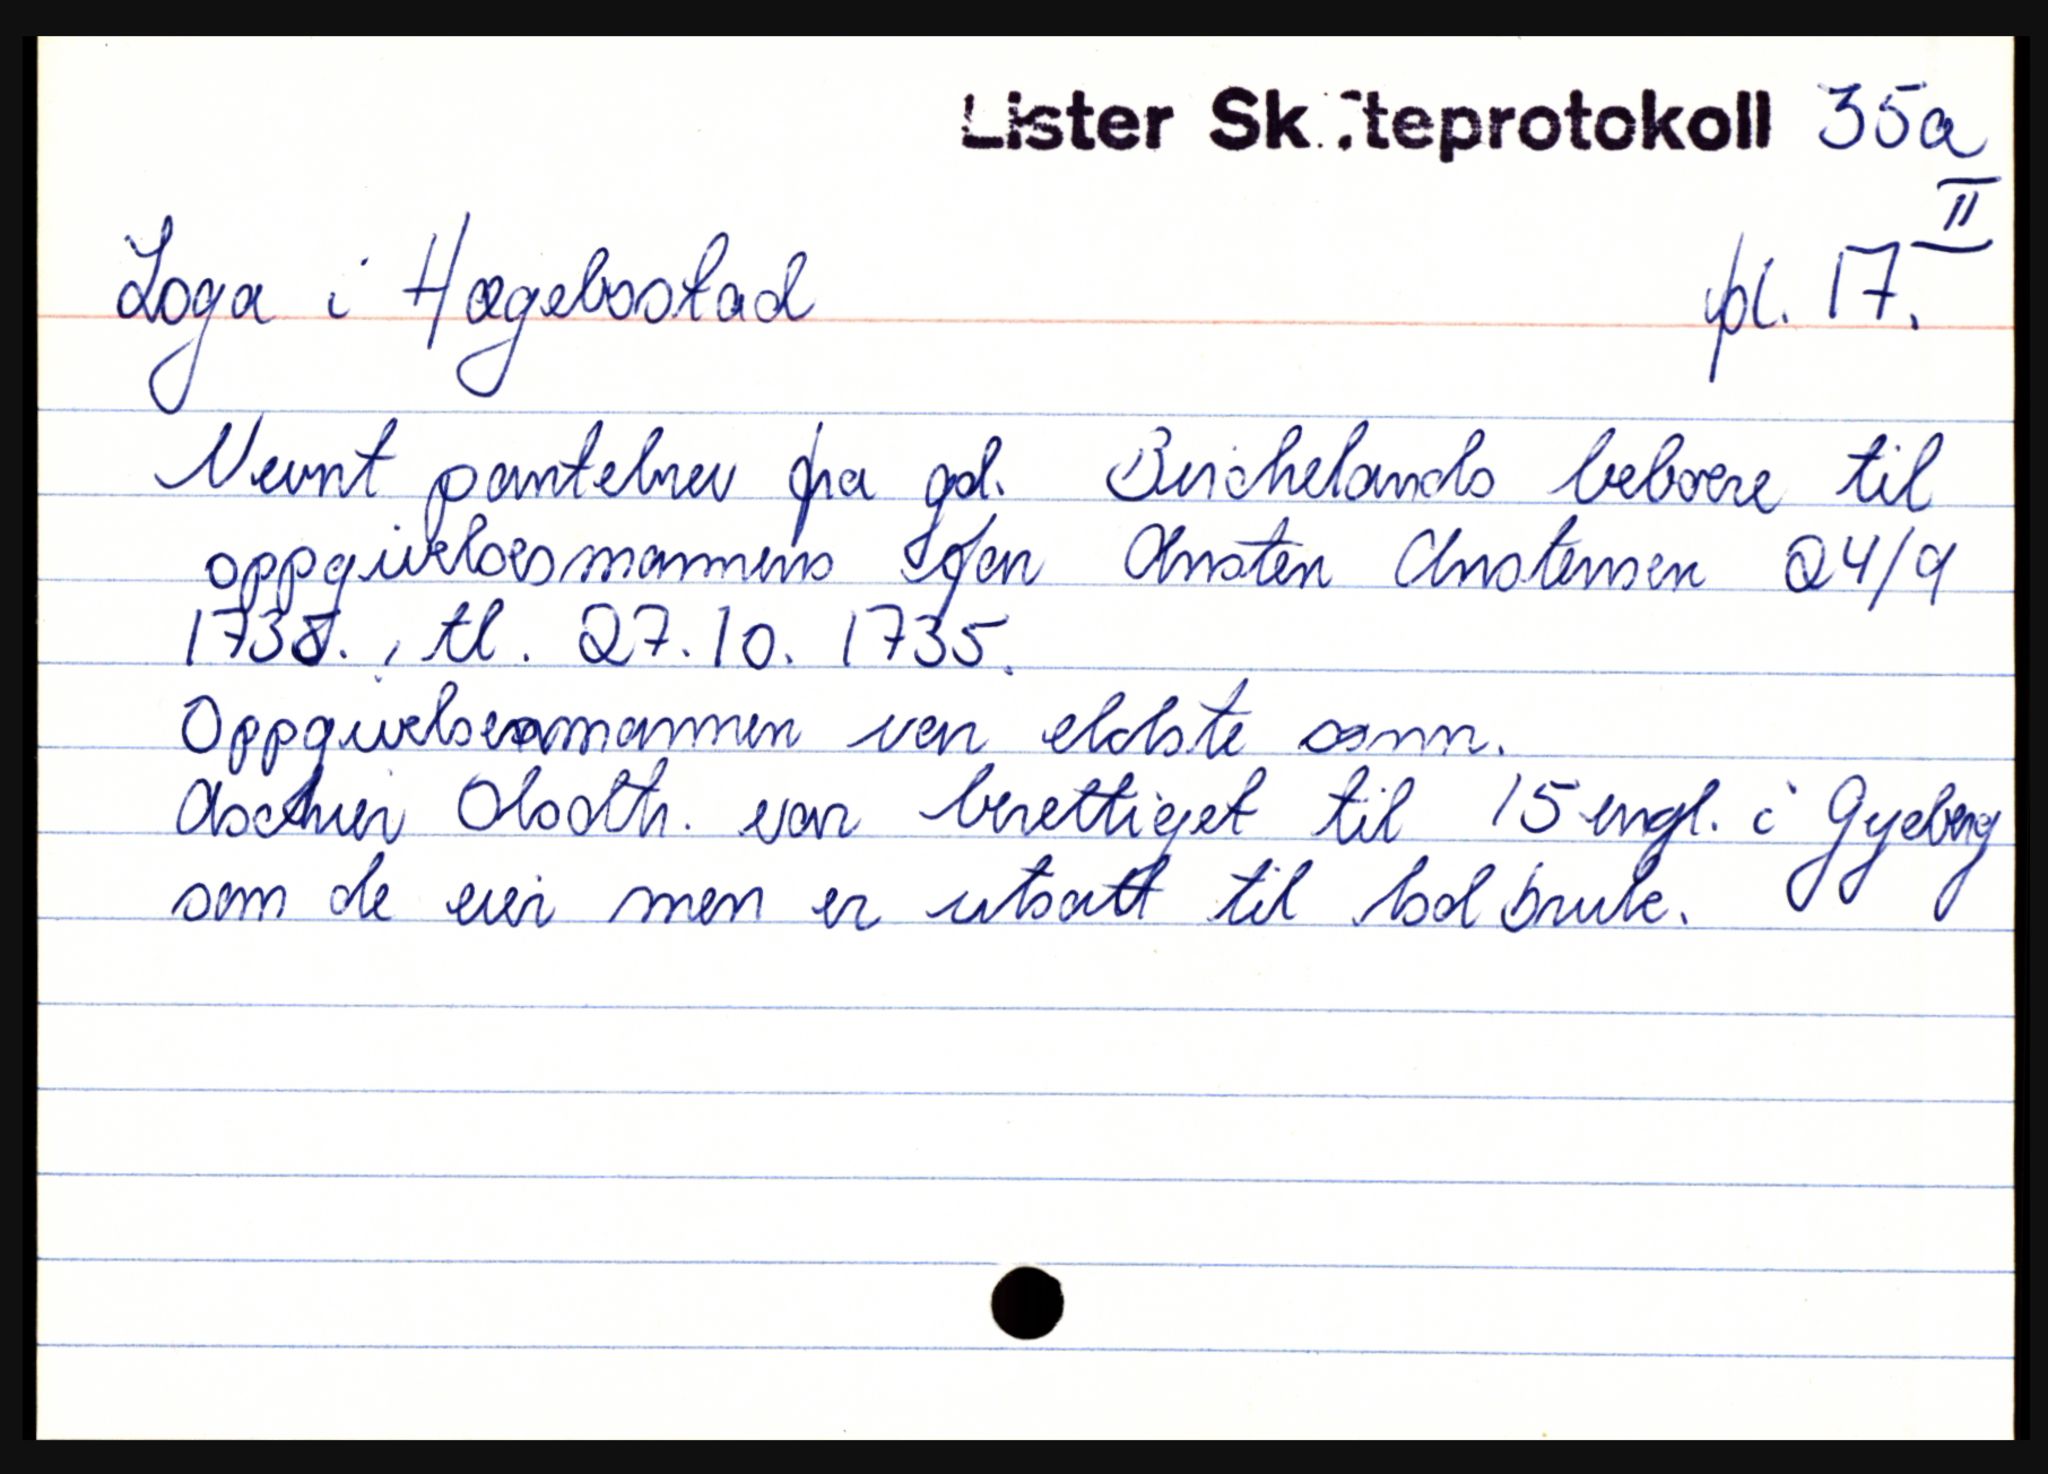 Lister Sk teprotokoll 35a
II
Loga i Hægebostad fol. 17.
Nevnt pantebrev fra gd. Birchelands beboere til
oppgivelsesmannens far Ansten Anstensen 24/9
1735., tl. 27.10.1735.
Oppgivelsesmannen var eldste sønn.
Olsdtr. var berettiget til 15 engl. i Gyeberg
som de eier men er utsatt til bol bruk.